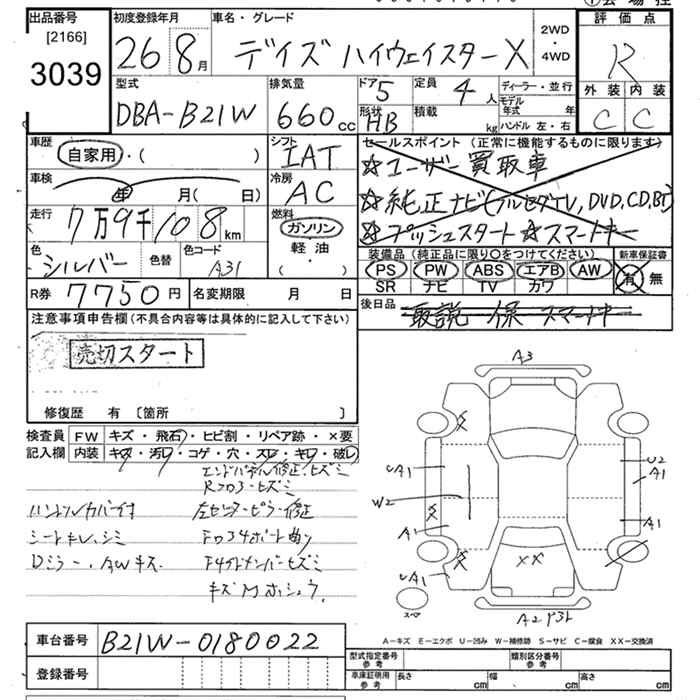 出品番号
[2166]
3039
初度登録年月
26 8月
車名・グレード
デイズ ハイウェイスターX
2WD
・
4WD
評価点
R
型式
DBA-B21W
排気量
660cc
ドア 5
定員 4人
形状 HB
積載 kg
ディーラー・並行
モデル年式 年
ハンドル 左・右
外装 内装
C C
車歴
自家用・( )
シフト
IAT
セールスポイント (正常に機能するものに限ります)
☆ユーザー買取車
車検
年 月( 日)
冷房
AC
☆純正ナビ(フルセグTV,DVD,CD,BT)
走行
7万9千108km
燃料
ガソリン
軽油
・( )
☆プッシュスタート ☆スマートキー
色
シルバー
色替
色コード
A31
装備品 (純正品に限り○をつけてください)
PS PW ABS エアB AW
SR ナビ TV カワ
新車保証書
有 無
R券 7750円
名変期限 月 日
後日品
取説 保 スマートキー
注意事項申告欄(不具合内容等は具体的に記入して下さい)
売切スタート
修復歴 有 [箇所 ]
検査員
記入欄
FW キズ・飛石・ヒビ割・リペア跡・×要
内装 キズ・汚レ・コゲ・穴・スレ・キレ・破レ
エンドパネル修正、ヒズミ
Rフロア・ヒズミ
ハンドルカバー付
左センターピラー修正
シートキレ、シミ
Dミラー、AWキズ
キズMホシュウ
A3
UA1
W2
A1
UA1
U2
A1
A1
XX
スペア
A2
A-キズ E-エクボ U-凹み W-補修跡 S-サビ C-腐食 XX-交換済
車台番号 B21W-0180022
登録番号
型式指定番号
参考
類別区分番号
参考
車庫証明用
参考
長さ cm 幅 cm 高さ cm